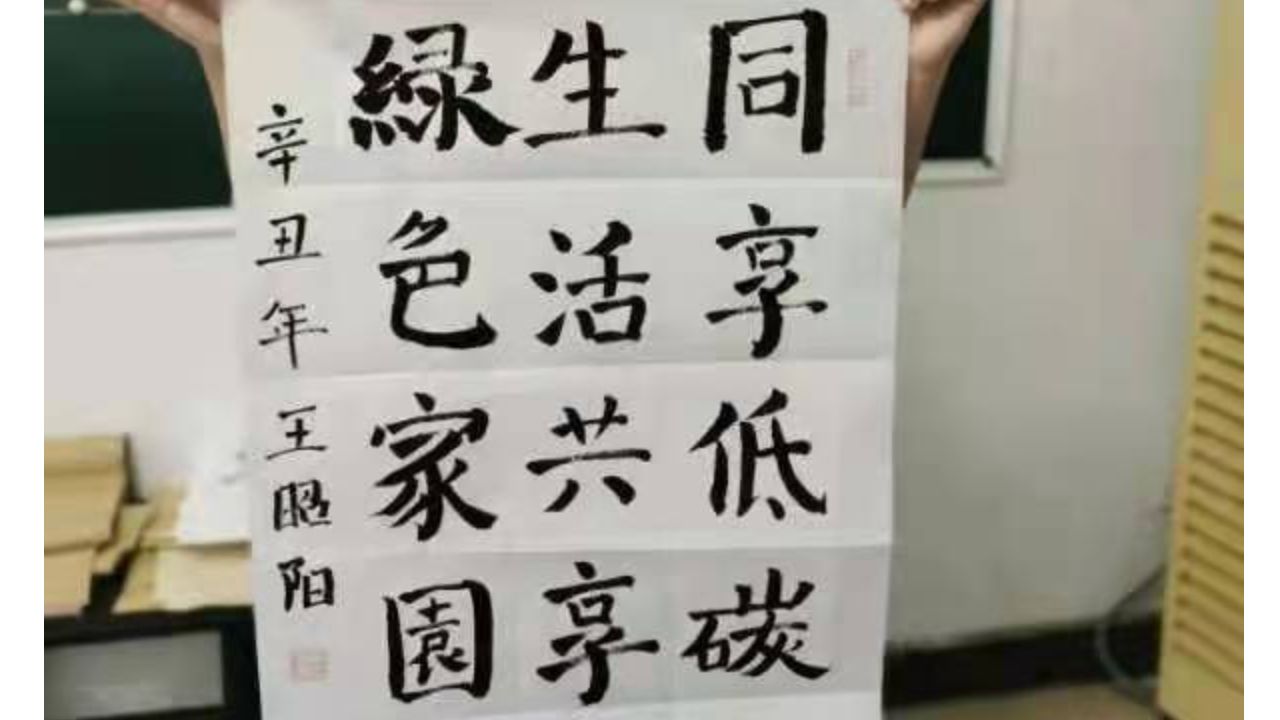 同享低碳
生活共享
緑色家園
辛丑年王昭阳